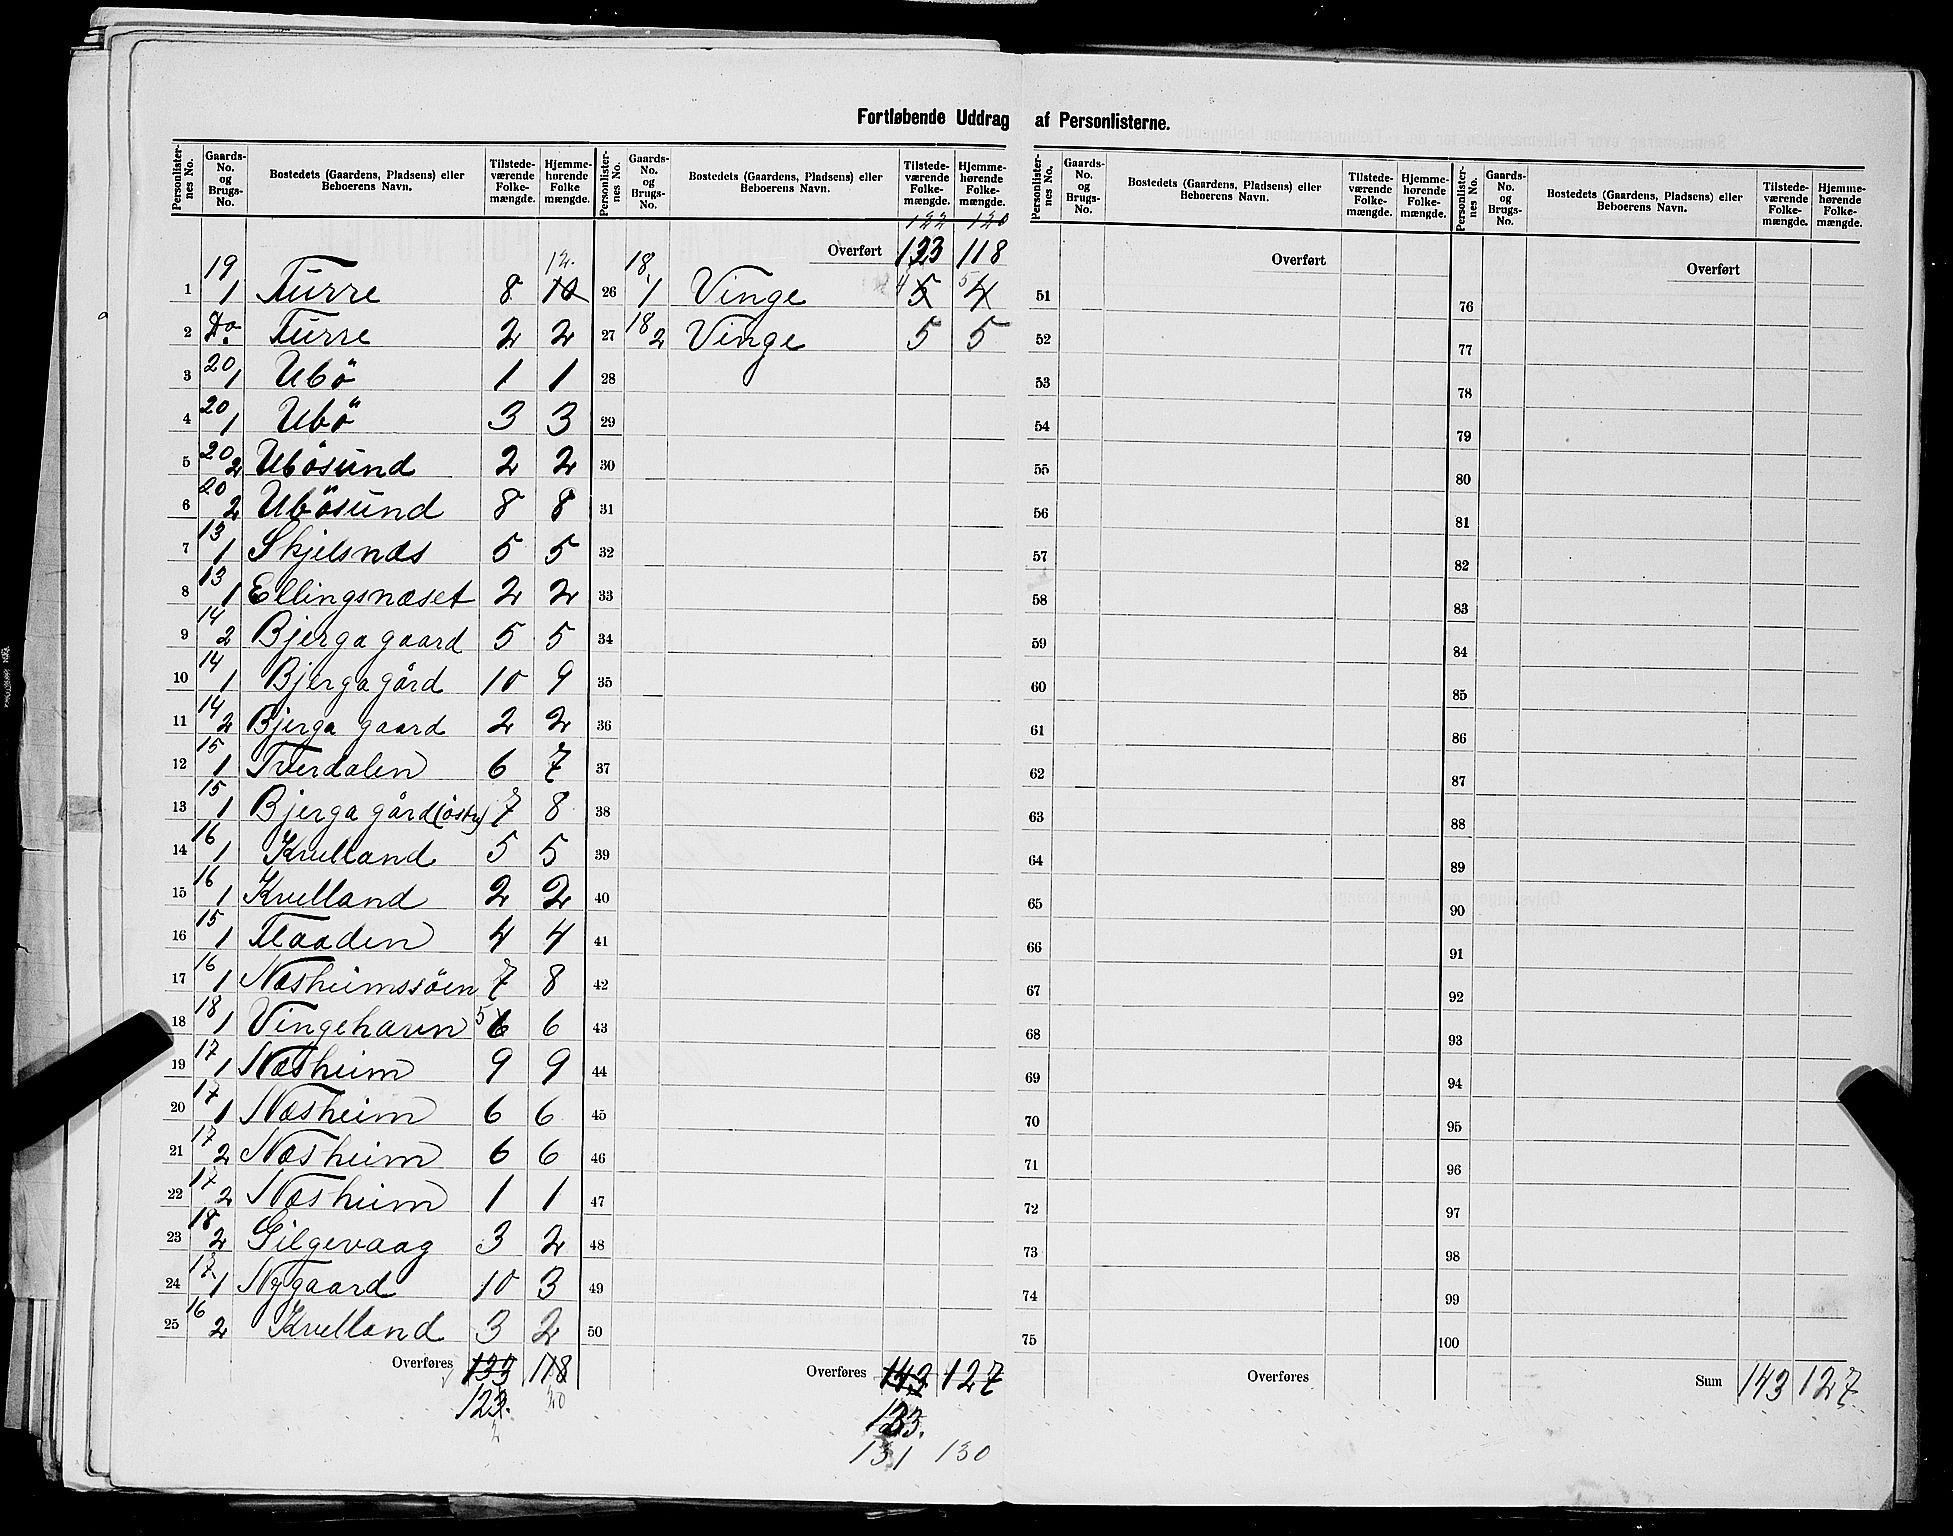 Fortløbende Uddrag af Personlisterne.
Personlister-nes No. | Gaards-No. og Brugs-No. | Bostedets (Gaardens, Pladsens) eller Beboerens Navn. | Tilstede-værende Folke-mængde. | Hjemme-hørende Folke mængde.
1 19 1 Turre 8 10 12.
2 Do. Turre 2 2
3 20 1 Ubö 1 1
4 20 1 Ubö 3 3
5 20 2 Ubösund 2 2
6 20 2 Ubösund 8 8
7 13 1 Skjelsnæs 5 5
8 13 1 Ellingsnæset 2 2
9 14 2 Bjerga gaard 5 5
10 14 1 Bjerga gård 10 9
11 14 2 Bjerga gaard 2 2
12 15 1 Tverdalen 6 7
13 15 1 Bjerga gård (östr) 7 8
14 16 1 Kvelland 5 5
15 16 1 Kvelland 2 2
16 15 1 Flaaden 4 4
17 16 1 Næsheimssöen 7 8
18 18 1 Vingehavn 5 6 6
19 17 1 Næsheim 9 9
20 17 1 Næsheim 6 6
21 17 2 Næsheim 6 6
22 17 2 Næsheim 1 1
23 18 2 Gilgevaag 3 2
24 17 1 Nygaard 10 3
25 16 2 Kvelland 3 2
Overføres 133 118
123. 20
2
Personlister-nes No. | Gaards-No. og Brugs-No. | Bostedets (Gaardens, Pladsens) eller Beboerens Navn. | Tilstede-værende Folke-mængde. | Hjemme-hørende Folke-mængde.
122 120
Overført 123 118
26 18 1 Vinge 4 5 5 4
27 18 2 Vinge 5 5
28
29
30
31
32
33
34
35
36
37
38
39
40
41
42
43
44
45
46
47
48
49
50
Overføres 143 127
133.
131 130
Personlister-nes No. | Gaards-No. og Brugs-No. | Bostedets (Gaardens, Pladsens) eller Beboerens Navn. | Tilstede-værende Folke-mængde. | Hjemme-hørende Folke-mængde.
Overført
51
52
53
54
55
56
57
58
59
60
61
62
63
64
65
66
67
68
69
70
71
72
73
74
75
Overføres
Personlister-nes No. | Gaards-No. og Brugs-No. | Bostedets (Gaardens, Pladsens) eller Beboerens Navn. | Tilstede-værende Folke-mængde. | Hjemme-hørende Folke-mængde.
Overført
76
77
78
79
80
81
82
83
84
85
86
87
88
89
90
91
92
93
94
95
96
97
98
99
100
Sum 143 127.